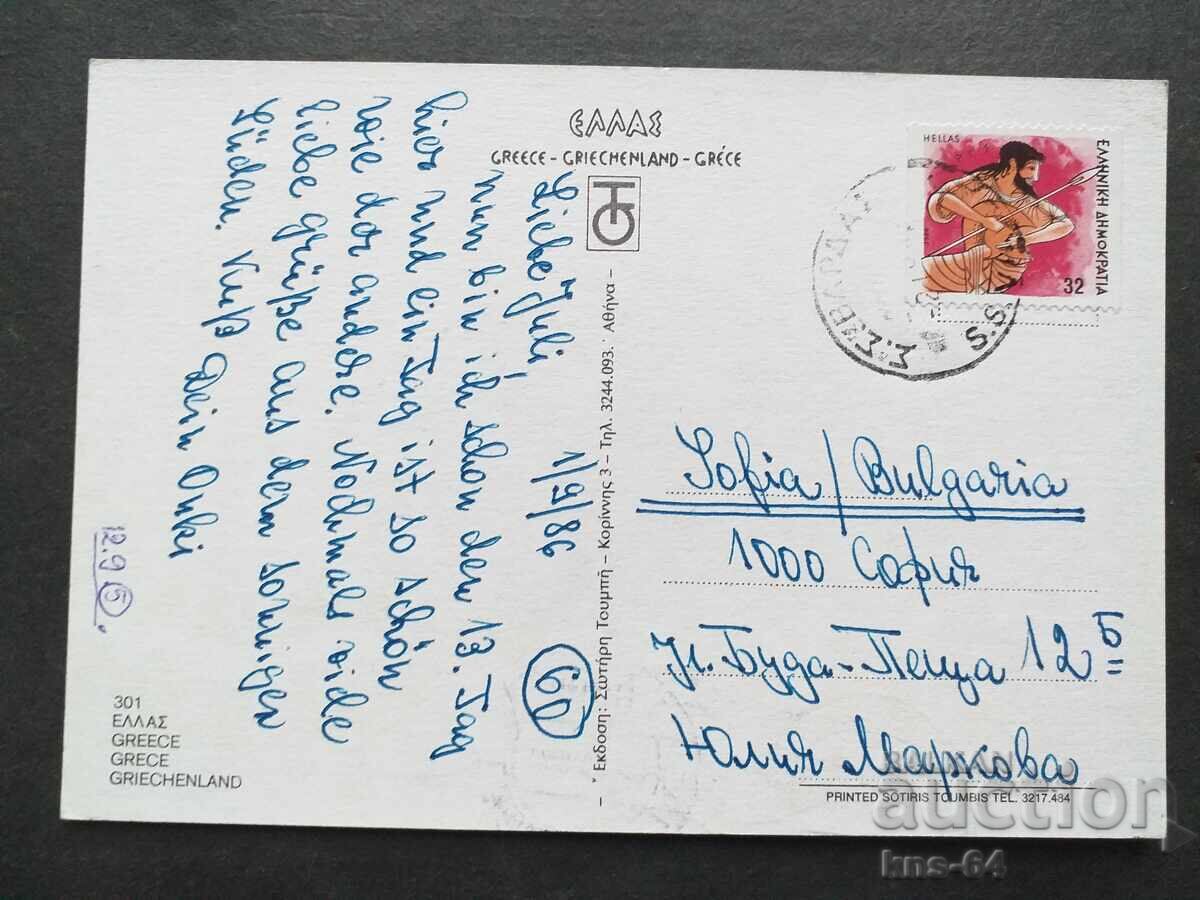 ΕΛΛΑΣ
GREECE - GRIECHENLAND - GRÉCE
Liebe Juli, 1/9/86
nun bin ich schon den 13. Tag
hier und ein Tag ist so schön
wie dor andere. Nochmals viele
liebe Grüße aus dem sonnigen
Süden. Kuß Dein Onki
12.9 5.
60
301
ΕΛΛΑΣ
GREECE
GRECE
GRIECHENLAND
– Έκδοση: Σωτήρη Τουμπή – Κορίννης 3 – Τηλ. 3244.093. Αθήνα –
HELLAS
ΕΛΛΗΝΙΚΗ ΔΗΜΟΚΡΑΤΙΑ
32
Sofia/Bulgaria
1000 София
ул. Буда-Пеща 12 Б
Юлия Маркова
PRINTED SOTIRIS TOUMBIS TEL. 3217.484
auction
kns-64